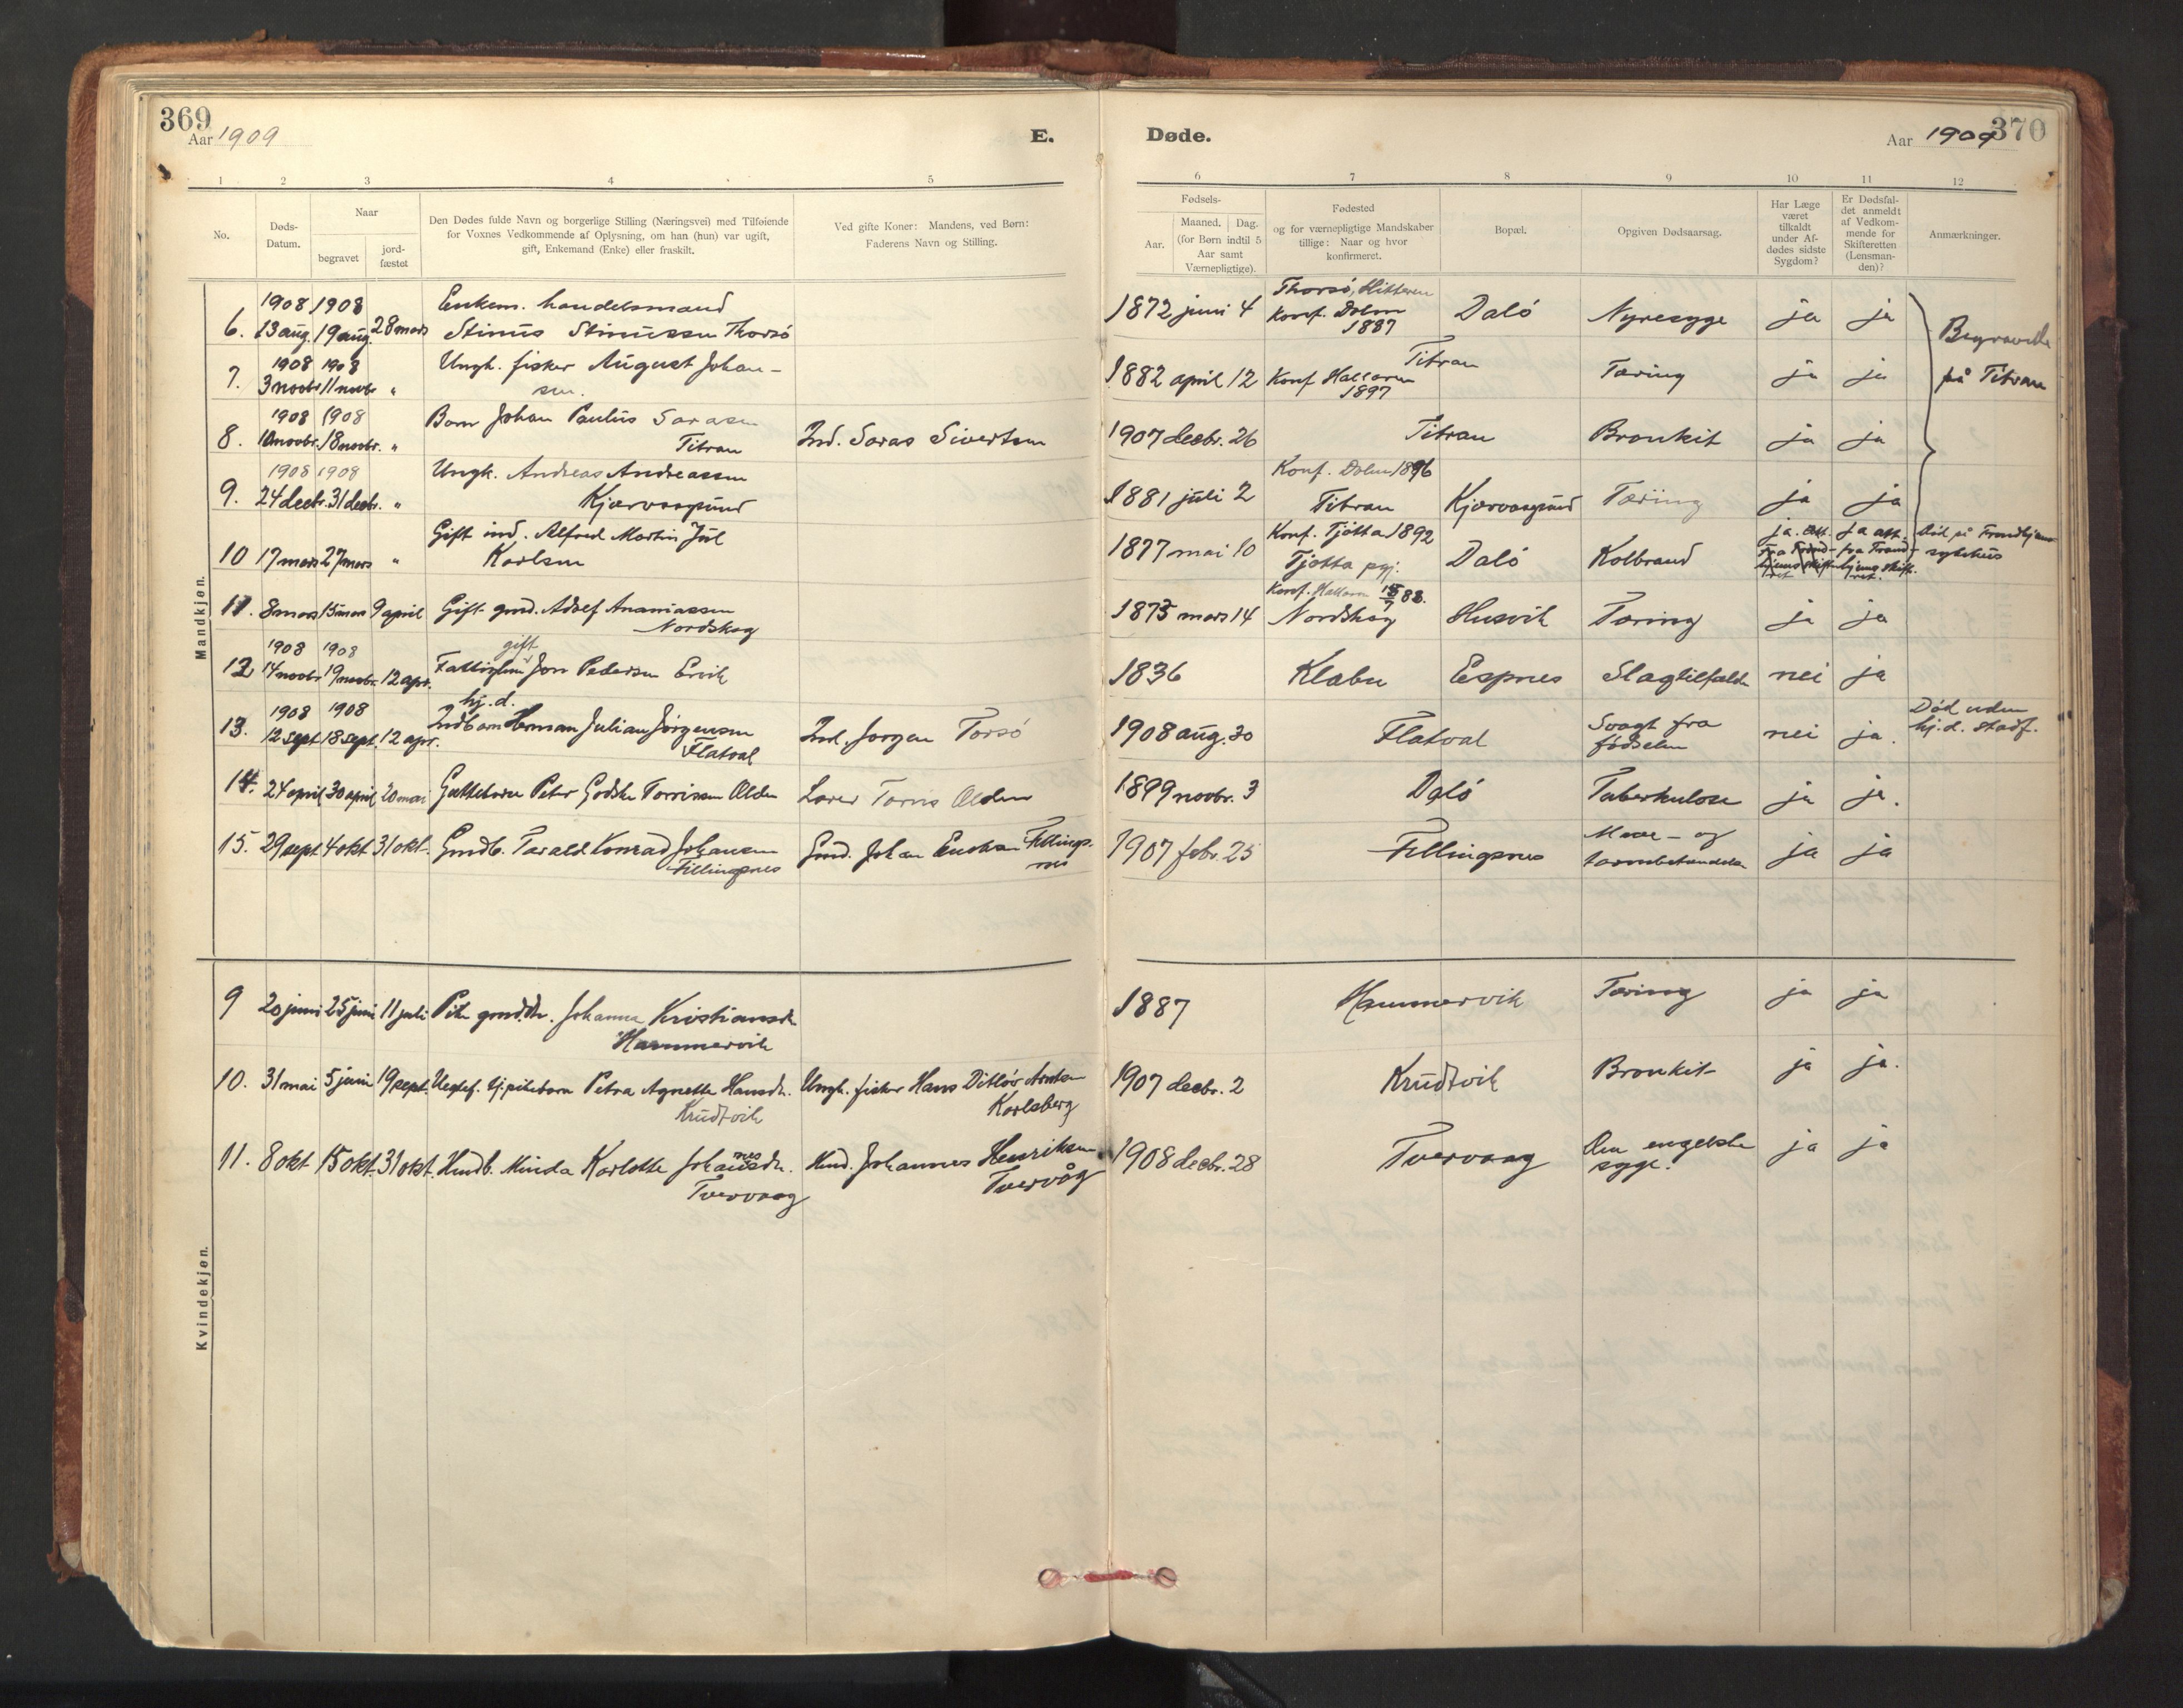 369
Aar 1909
E.
Døde.
Aar 1909
370
1 2 3 4 5
6 7 8 9 10 11 12
No.
Døds-
Datum.
Naar
begravet
jord-
fæstet
Den Dødes fulde Navn og borgerlige Stilling (Næringsvei) med Tilføiende
for Voxnes Vedkommende af Oplysning, om han (hun) var ugift,
gift, Enkemand (Enke) eller fraskilt.
Ved gifte Koner: Mandens, ved Børn:
Faderens Navn og Stilling.
Fødsels-
Aar.
Maaned. Dag.
(for Børn indtil 5
Aar samt
Værnepligtige).
Fødested
og for værnepligtige Mandskaber
tillige: Naar og hvor
konfirmeret.
Bopæl.
Opgiven Dødsaarsag.
Har Læge
været
tilkaldt
under Af-
dødes sidste
Sygdom?
Er Dødsfal-
det anmeldt
af Vedkom-
mende for
Skifteretten
(Lensman-
den)?
Anmærkninger.
Mandkjøn.
1908 1908 Enkem. handelsmand Thorsö, Hitteren
6. 13 aug. 19 aug. 28 mars Stinus Stinussen Thorsö 1872 juni 4 Konf. Dolm 1887 Dalö Nyresyge ja ja
Begravede
på Titran
1908 1908 Ungk. fisker August Johan-
7. 3 novbr 11 novbr " sen. 1882 april 12 Konf Hallaren 1897 Titran Tæring ja ja
1908 1908 Barn Johan Paulus Sarasen
8. 10 novbr. 18 novbr. " Titran Ind. Saras Sivertsen 1907 decbr. 26 Titran Bronkit ja ja
1908 1908 Ungk. Andreas Andreassen Konf. Dolm 1896
9. 24 decbr. 31 decbr. " Kjærvaagsund 1881 juli 2 Titran Kjærvaagsund Tæring ja ja
Gift ind. Alfred Martin Jul Konf. Tjötta 1892 ja. att. ja att. Död på Trondhjems
10 17 mars 27 mars " Karlsen 1877 mai 10 Tjötta pgj. Dalö Kolbrand fra Trond- fra Trond- sykehus
hjems skifte- hjems skift.
ret ret.
Konf. Hallaren
11. 8 mars 15 mars 9 april Gift gmd. Adolf Ananiassen 1873 mars 14 Nordskag Husvik Tæring ja ja
Nordskag
1908 1908 gift
12 14 novbr 19 novbr. 12 apr. Fattiglem Jon Pedersen Ervik 1836 Klæbu Espnes Slagtilfælde nei ja
hj. d.
1908 1908 Död uden
13. 12 sept 18 sept. 12 apr. Indb arn Herman Julian Jørgensen Ind. Jørgen Torsö 1908 aug. 30 Flatval Svagt fra nei ja. hj. d. stadf.
Flatval fødselen
14. 24 april 30 april 20 mai Guttebarn Peter Godske Torrissen Alden Lærer Torris Alden 1899 novbr. 3 Dalö Tuberkulose ja ja.
15. 29 sept 4 okt 31 okt. Gmdb. Tarald Konrad Johansen Gmd. Johan Fillings- 1907 febr. 25 Fillingsnes Mave- og ja ja
Fillingsnes nes
Kvindekjøn.
9 20 juni 25 juni 11 juli Pike gmd.dr. Johanna Kristiansdr. 1887 Hammervik Tæring ja ja
Hammervik
10. 31 mai 5 juni 19 sept. Uegtef. pikebarn Petra Agnette Hansdr. Ungk. fisker Hans Ditløv Arntsen 1907 decbr. 2 Krudtvik Bronkit ja ja.
Krudtvik Karlsberg
11. 8 okt 15 okt. 31 okt. Hmdb. Minda Karlotte Johannesdr. Hmd. Johannes Henriksen 1908 decbr. 28 Tvervaag Den engelske ja ja
Tvervaag Tvervåg syge.